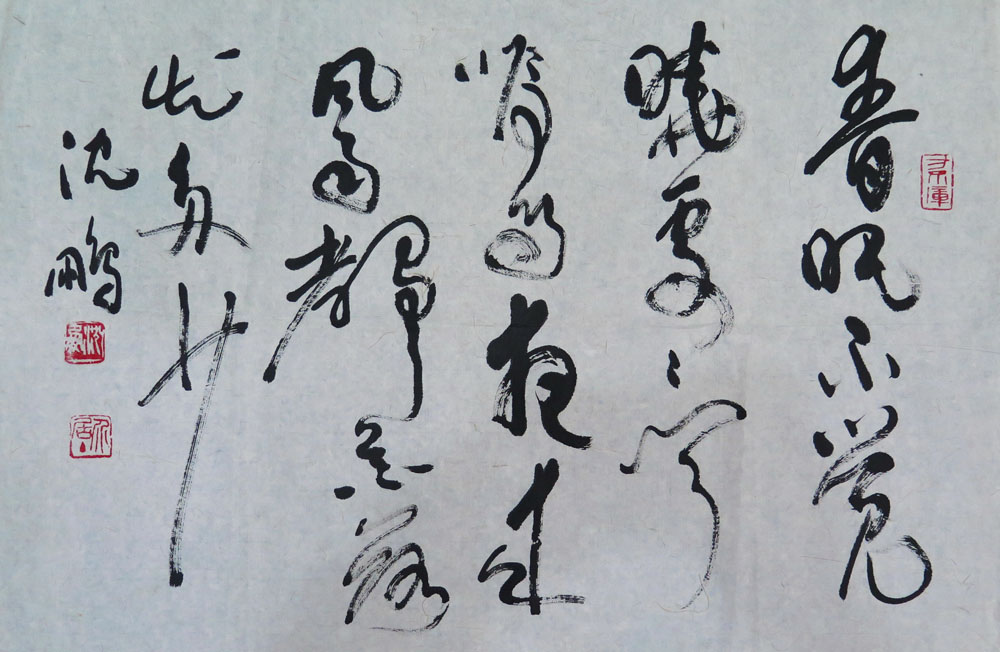 春眠不觉
晓處々闻
啼鸟夜来
风雨聲花落
知多少
沈鹏
沈鹏